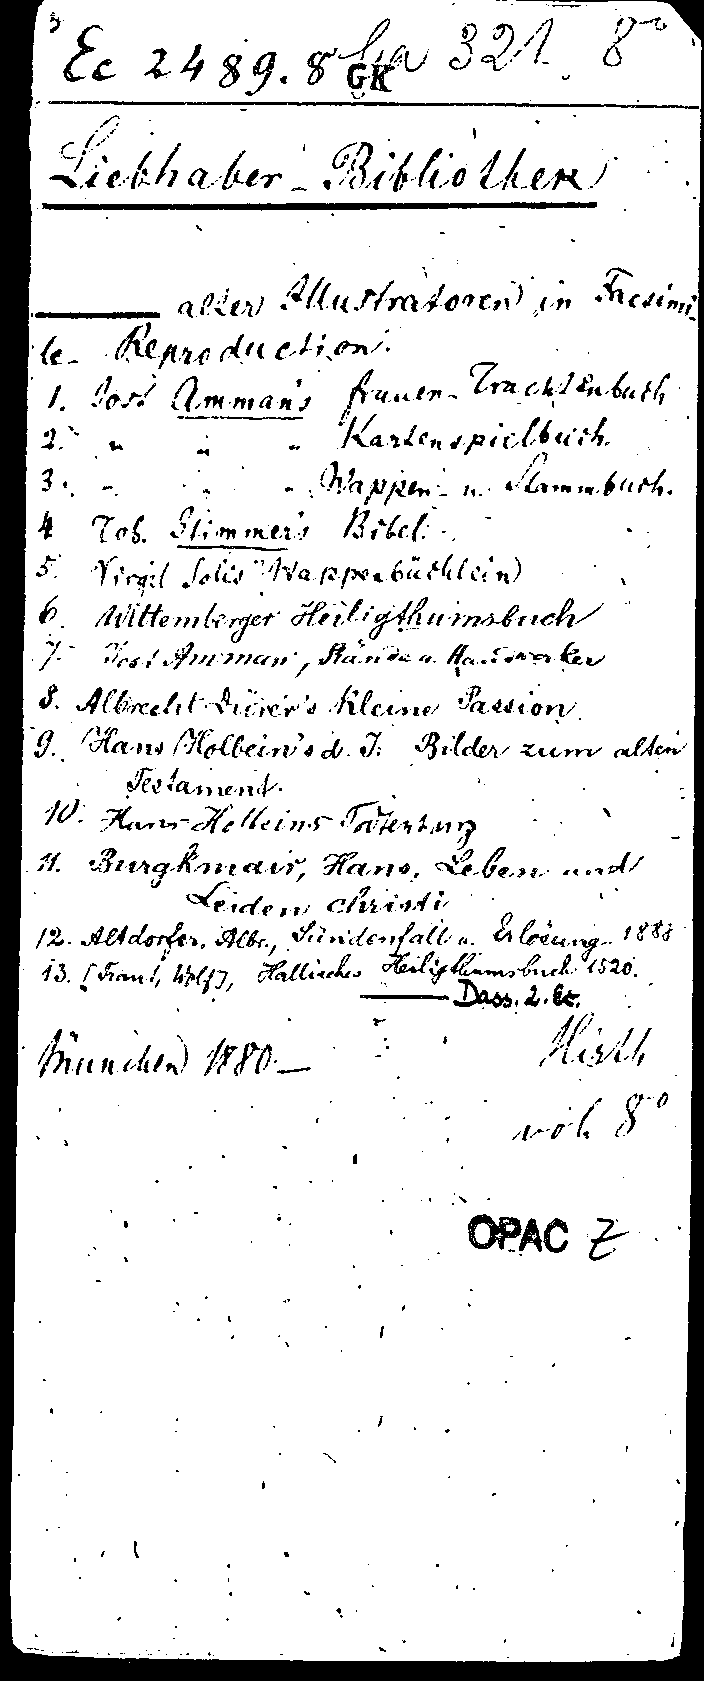 Ec 2489.8° GK La 321. 8°
Liebhaber-Bibliothek
——— alter Illustratoren in Facsimi-
le-Reproduction.
1. Jost Amman's Frauen-Trachtenbuch
2. " " " Kartenspielbuch.
3. " " " Wappen- u. Stammbuch.
4 Tob. Stimmer's Bibel.
5. Virgil Solis' Wappenbüchlein
6. Wittemberger Heiligthumsbuch
7. Jost Amman, Stände u. Handwerker
8. Albrecht Dürer's Kleine Passion.
9. Hans Holbein's d. J. Bilder zum alten
Testament.
10. Hans Holbeins Todtentanz
11. Burgkmair, Hans, Leben und
Leiden Christi
12. Altdorfer, Albr., Sündenfall u. Erlösung. 1888
13. [Traut, Wolf], Hallisches Heiligthumsbuch 1520.
——— Dass. 2. Ex.
München 1880—
Hirth
vol. 8°
OPAC Z